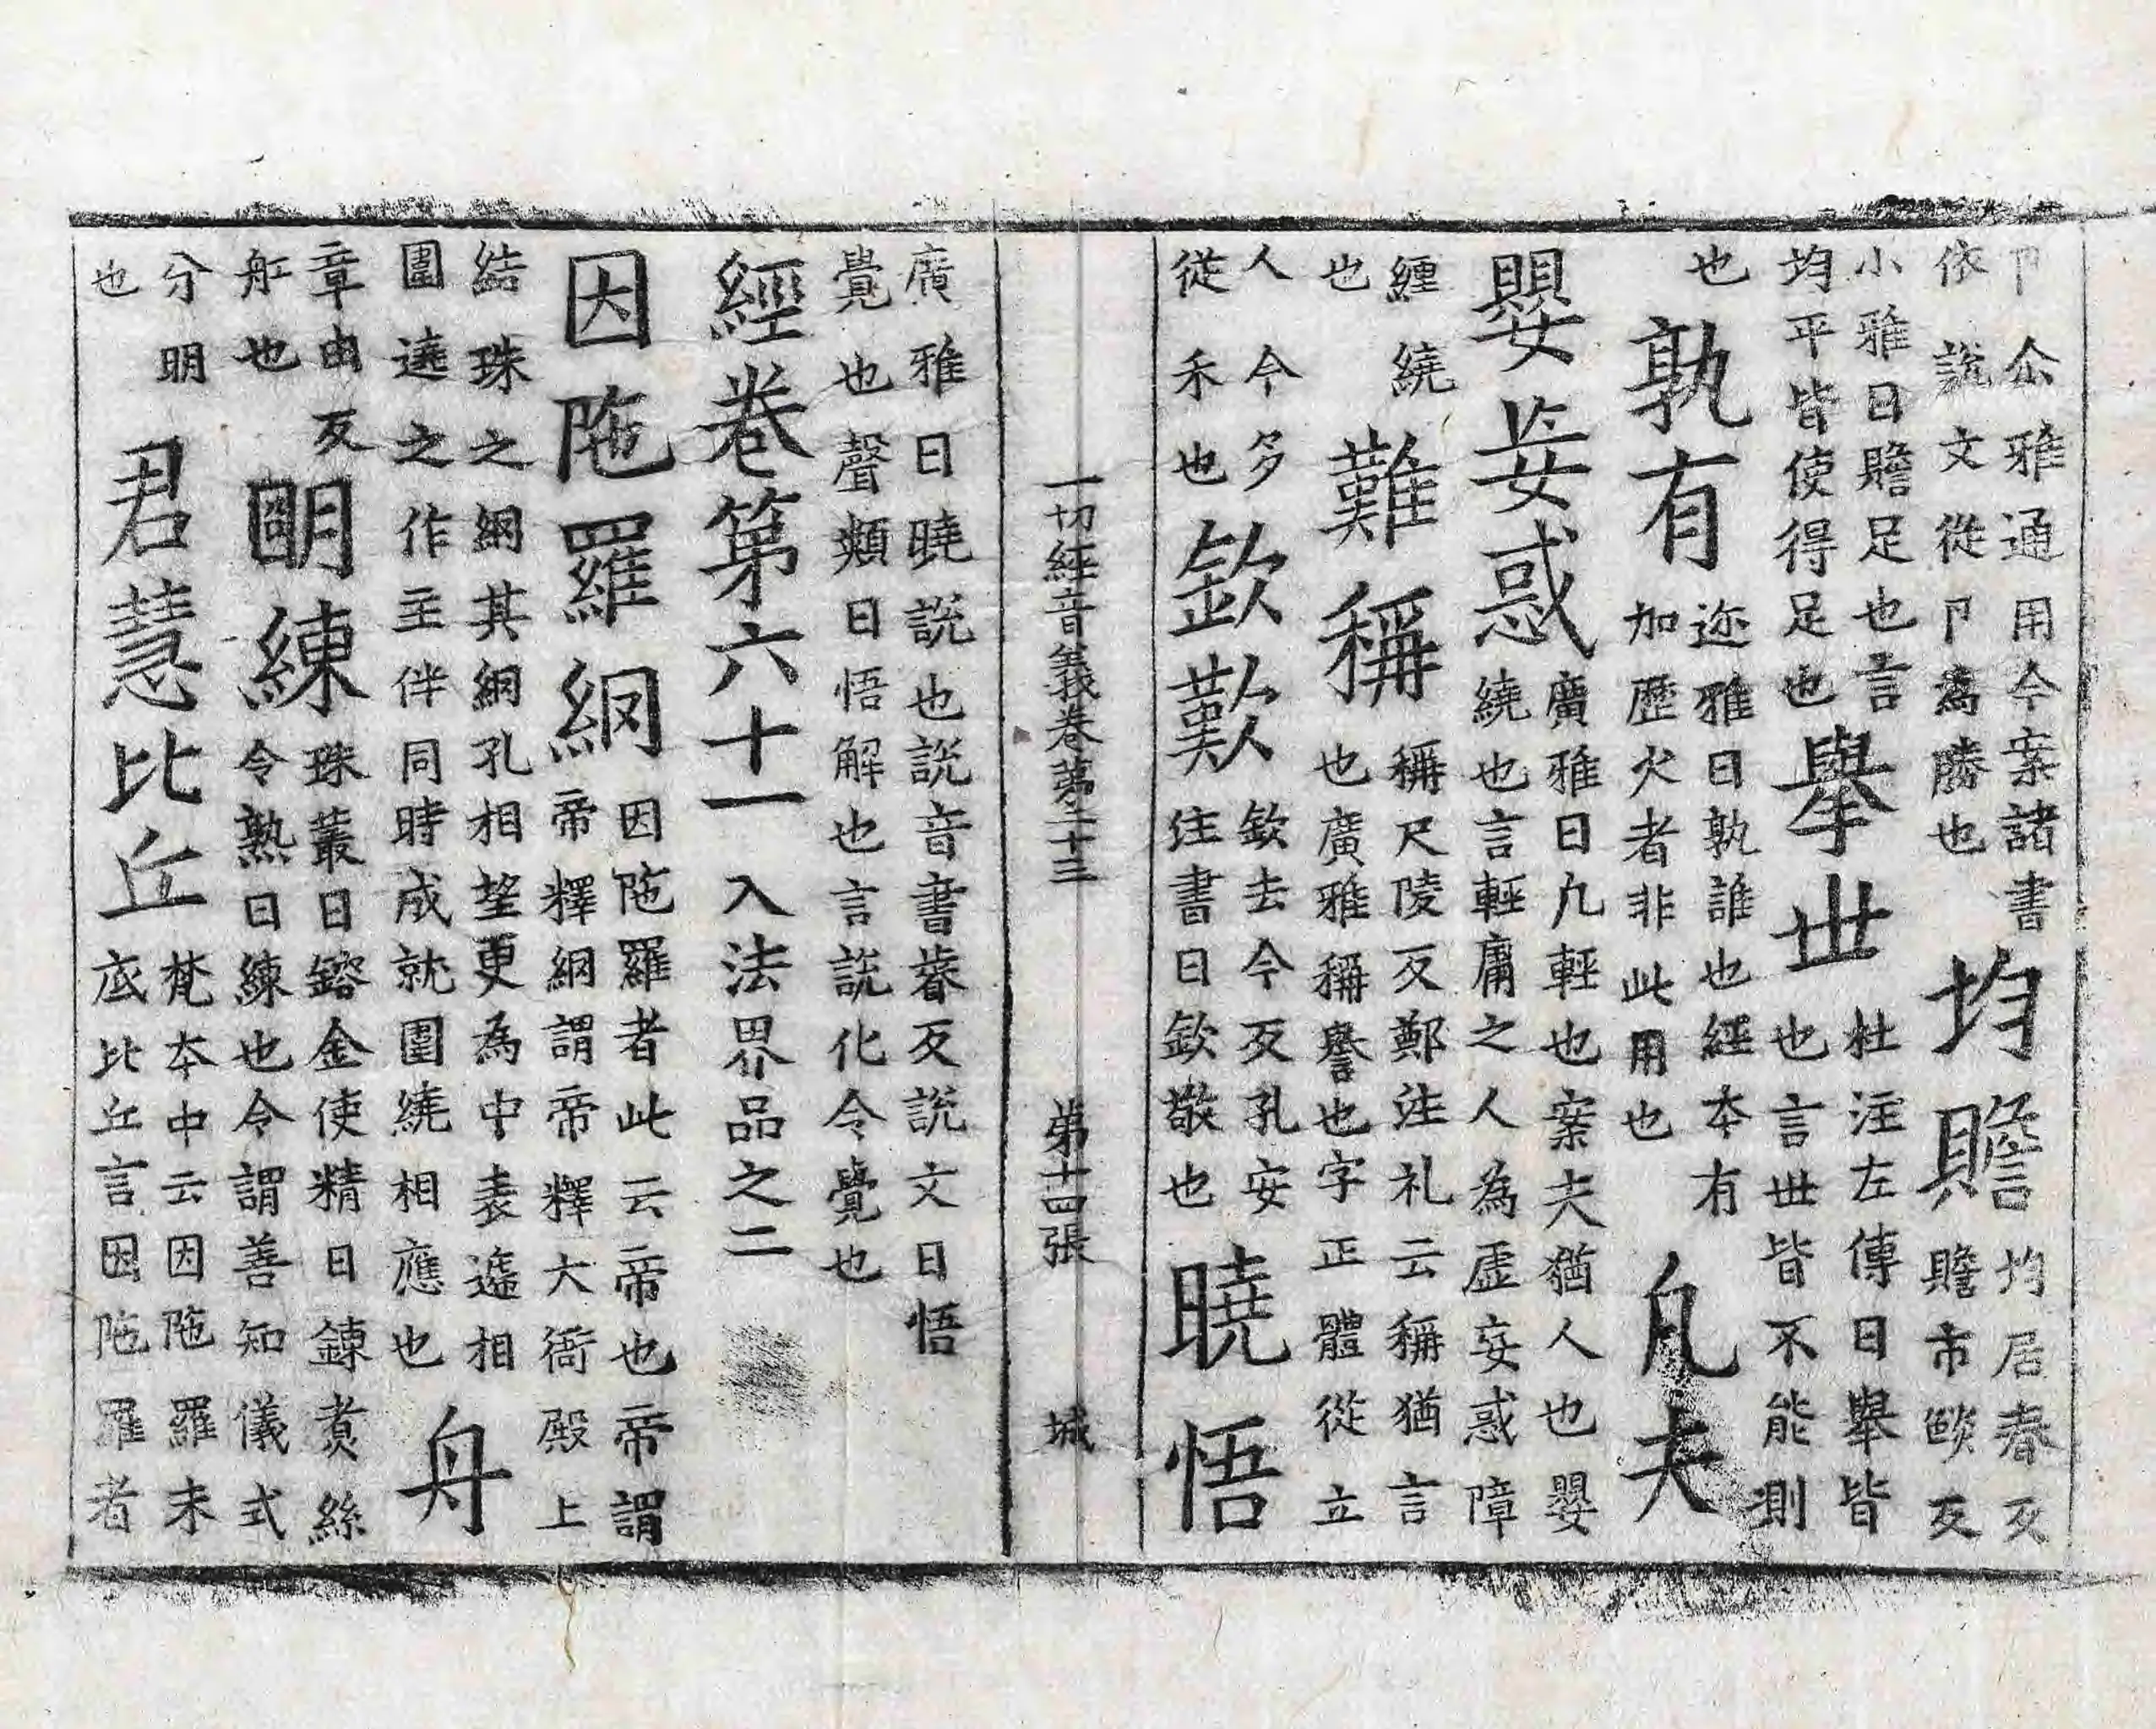 卩仚雅通用今案諸書
依說文從卩爲勝也
均贍
均居春反
贍市㷔反
小雅曰贍足也言
均平皆使得足也
舉世
杜注左傳曰舉皆
也言世皆不能測
也
孰有
迩雅曰孰誰也經本有
加歷火者非此用也
凡夫
廣雅曰凡輕也案夫猶人也嬰
繞也言輕庸之人為虛妄惑障
嬰妄惑
纏繞
也
難稱
稱尺陵反鄭注礼云稱猶言
也廣雅稱譽也字正體從立
人今多
從禾也
欽歎
欽去今反孔安
注書曰欽敬也
曉悟
一切經音義卷第二十三
第十四張
城
廣雅曰曉説也説音書睿反説文曰悟
覺也聲類曰悟解也言説化令覺也
經卷第六十一 入法界品之二
因陁羅網
因陁羅者此云帝也帝謂
帝釋網謂帝釋大衙殿上
結珠之網其網孔相望更為中表遞相
圍遶之作主伴同時成就圍繞相應也
舟
章由反
舡也
明練
珠叢曰鎔金使精曰鍊煮絲
令熟曰練也令謂善知儀式
分明
也
君慧比丘
梵本中云因陁羅末
底比丘言因陁羅者